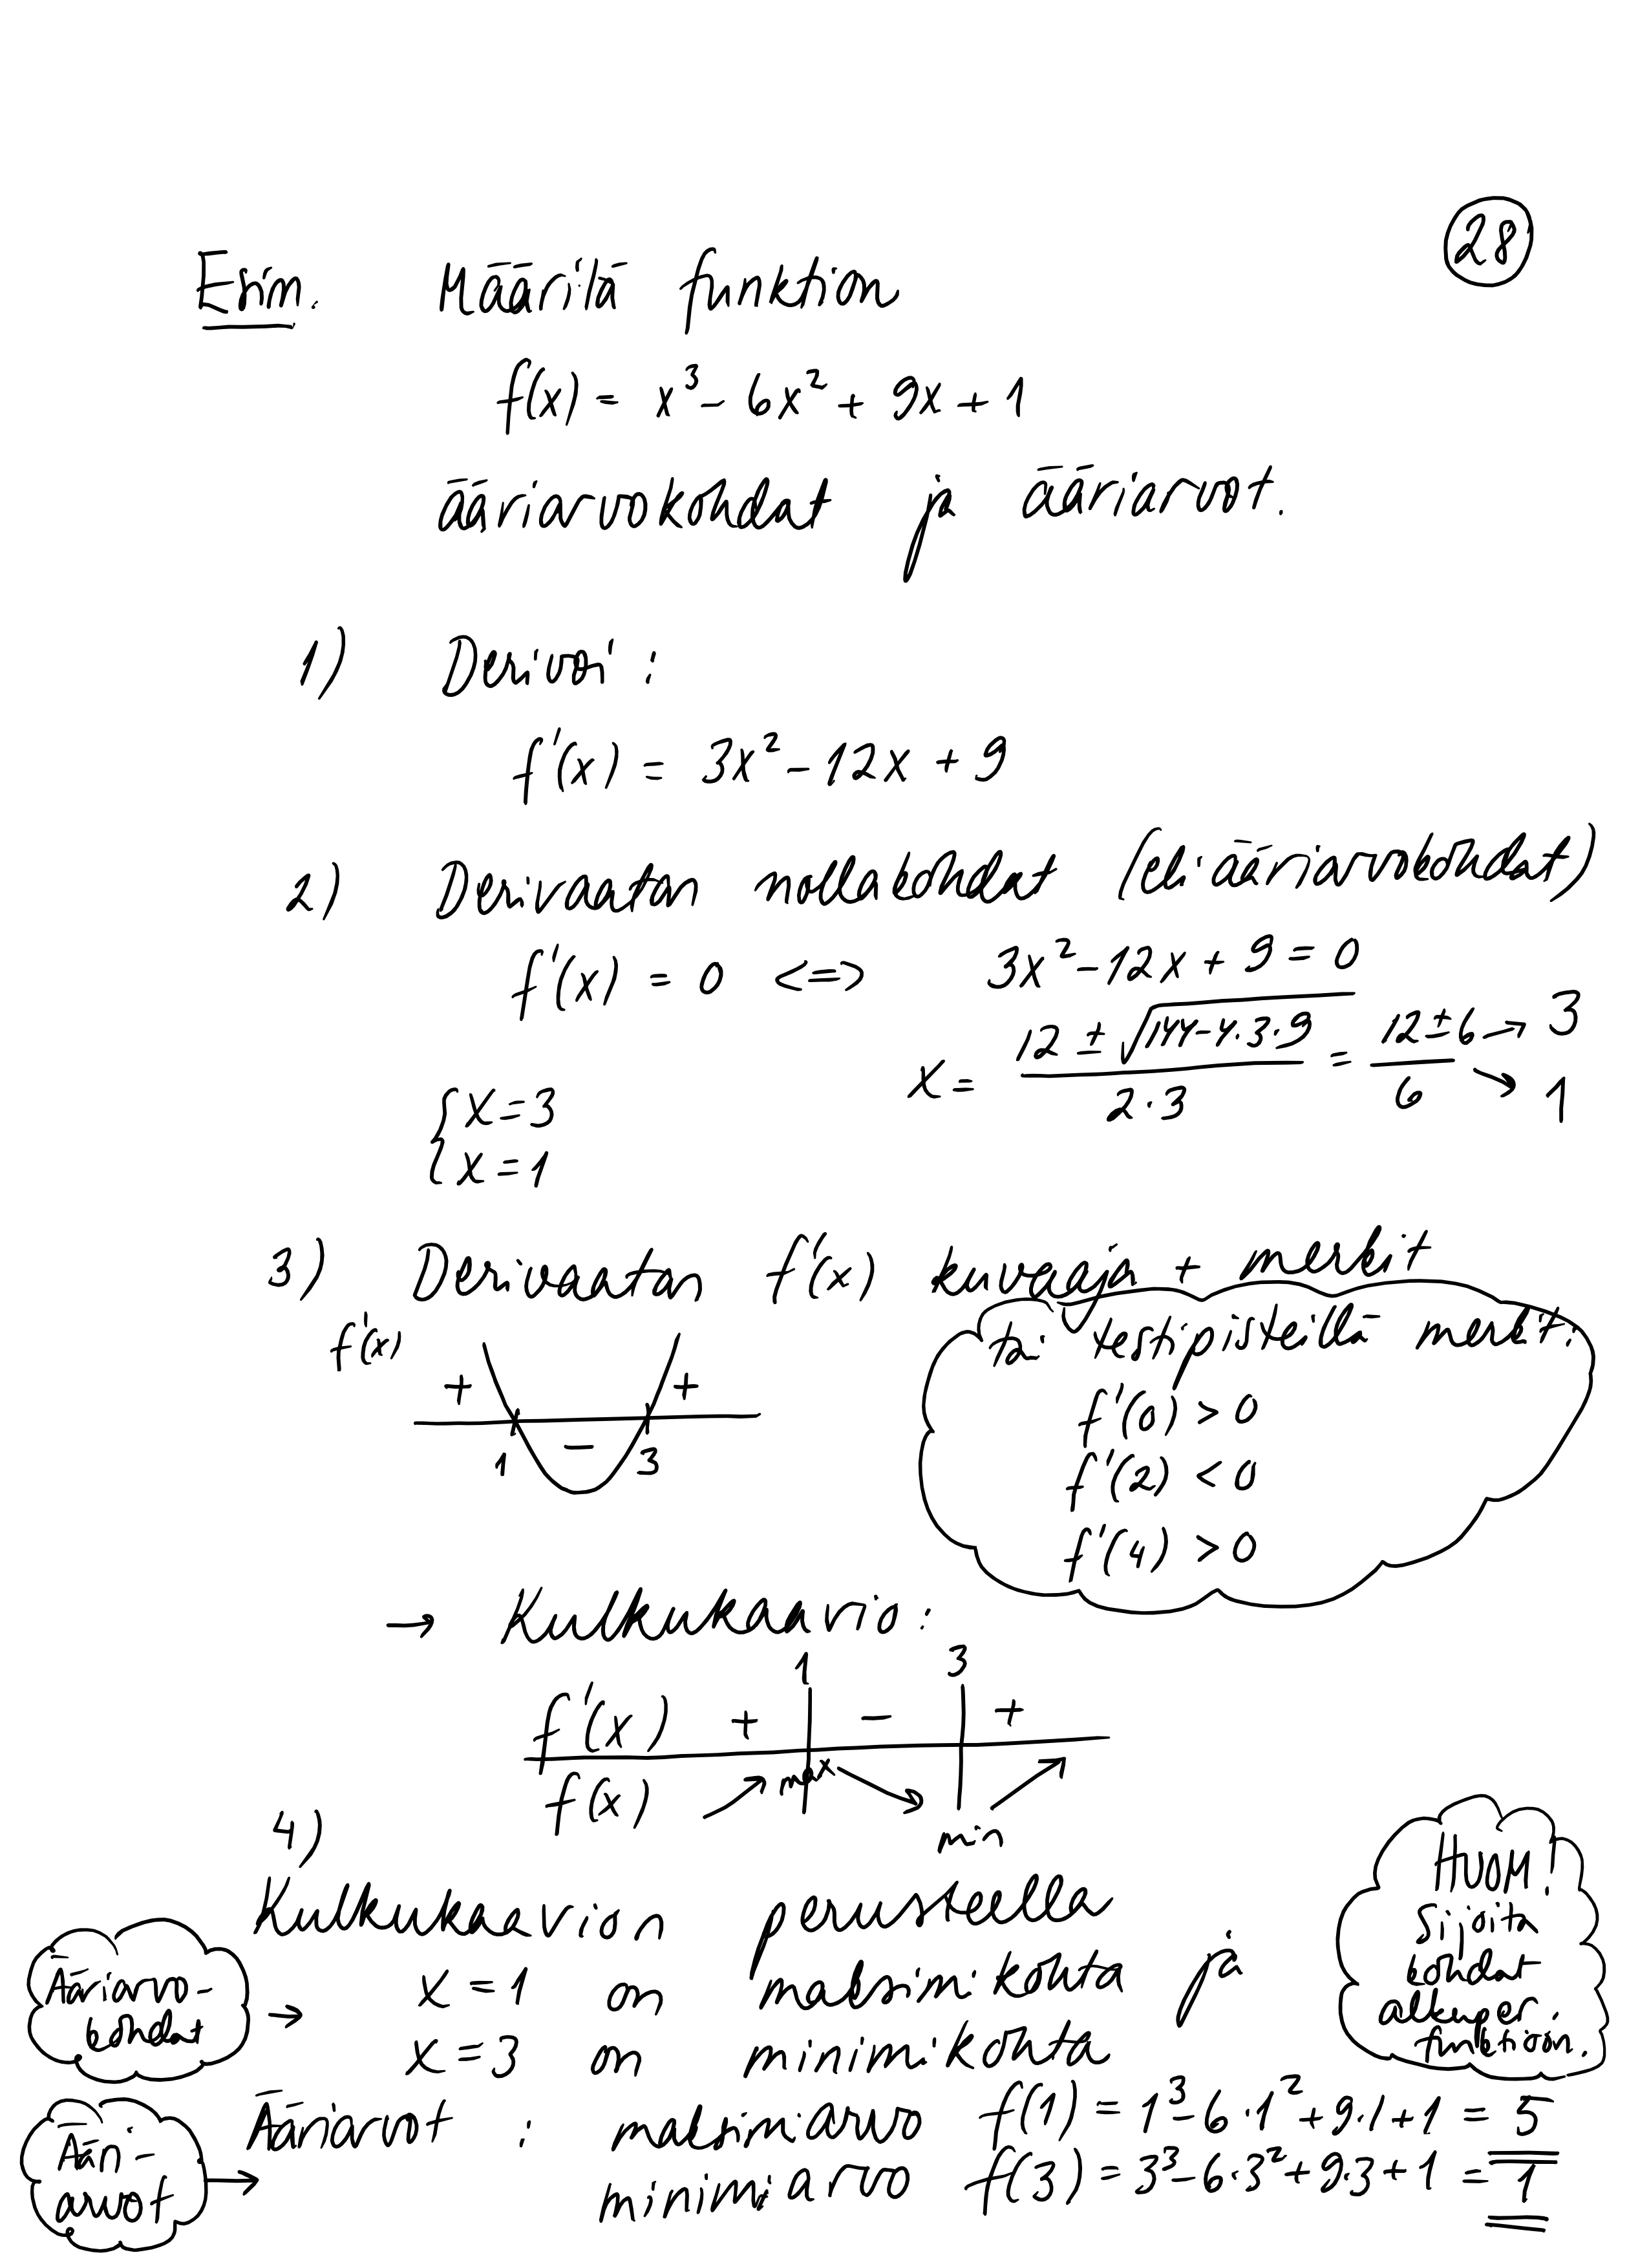 28
Esim. Määritä funktion
f(x) = x³ - 6x² + 9x + 1
ääriarvokohdat ja ääriarvot.
1) Derivoi :
f'(x) = 3x² - 12x + 9
2) Derivaatan nollakohdat (eli ääriarvokohdat)
f'(x) = 0 <=> 3x² - 12x + 9 = 0
x = (12 ± √(144-4·3·9))/(2·3) = (12±6)/6 → 3
→ 1
{ x = 3
{ x = 1
3) Derivaatan f'(x) kuvaaja + merkit
f'(x)
+ - +
1 3
tai testipisteillä merkit:
f'(0) > 0
f'(2) < 0
f'(4) > 0
→ Kulkukaavio :
1 3
f'(x) + - +
f(x) ↗ max ↘ min ↗
4)
Kulkukaavion perusteella
Ääriarvo-
kohdat →
x = 1 on maksimikohta ja
x = 3 on minimikohta
HUOM!
Sijoita
kohdat
alkuper.
funktioon.
Ääri-
arvot →
Ääriarvot : maksimiarvo f(1) = 1³-6·1²+9·1+1 = 5
minimiarvo f(3) = 3³-6·3²+9·3+1 = 1